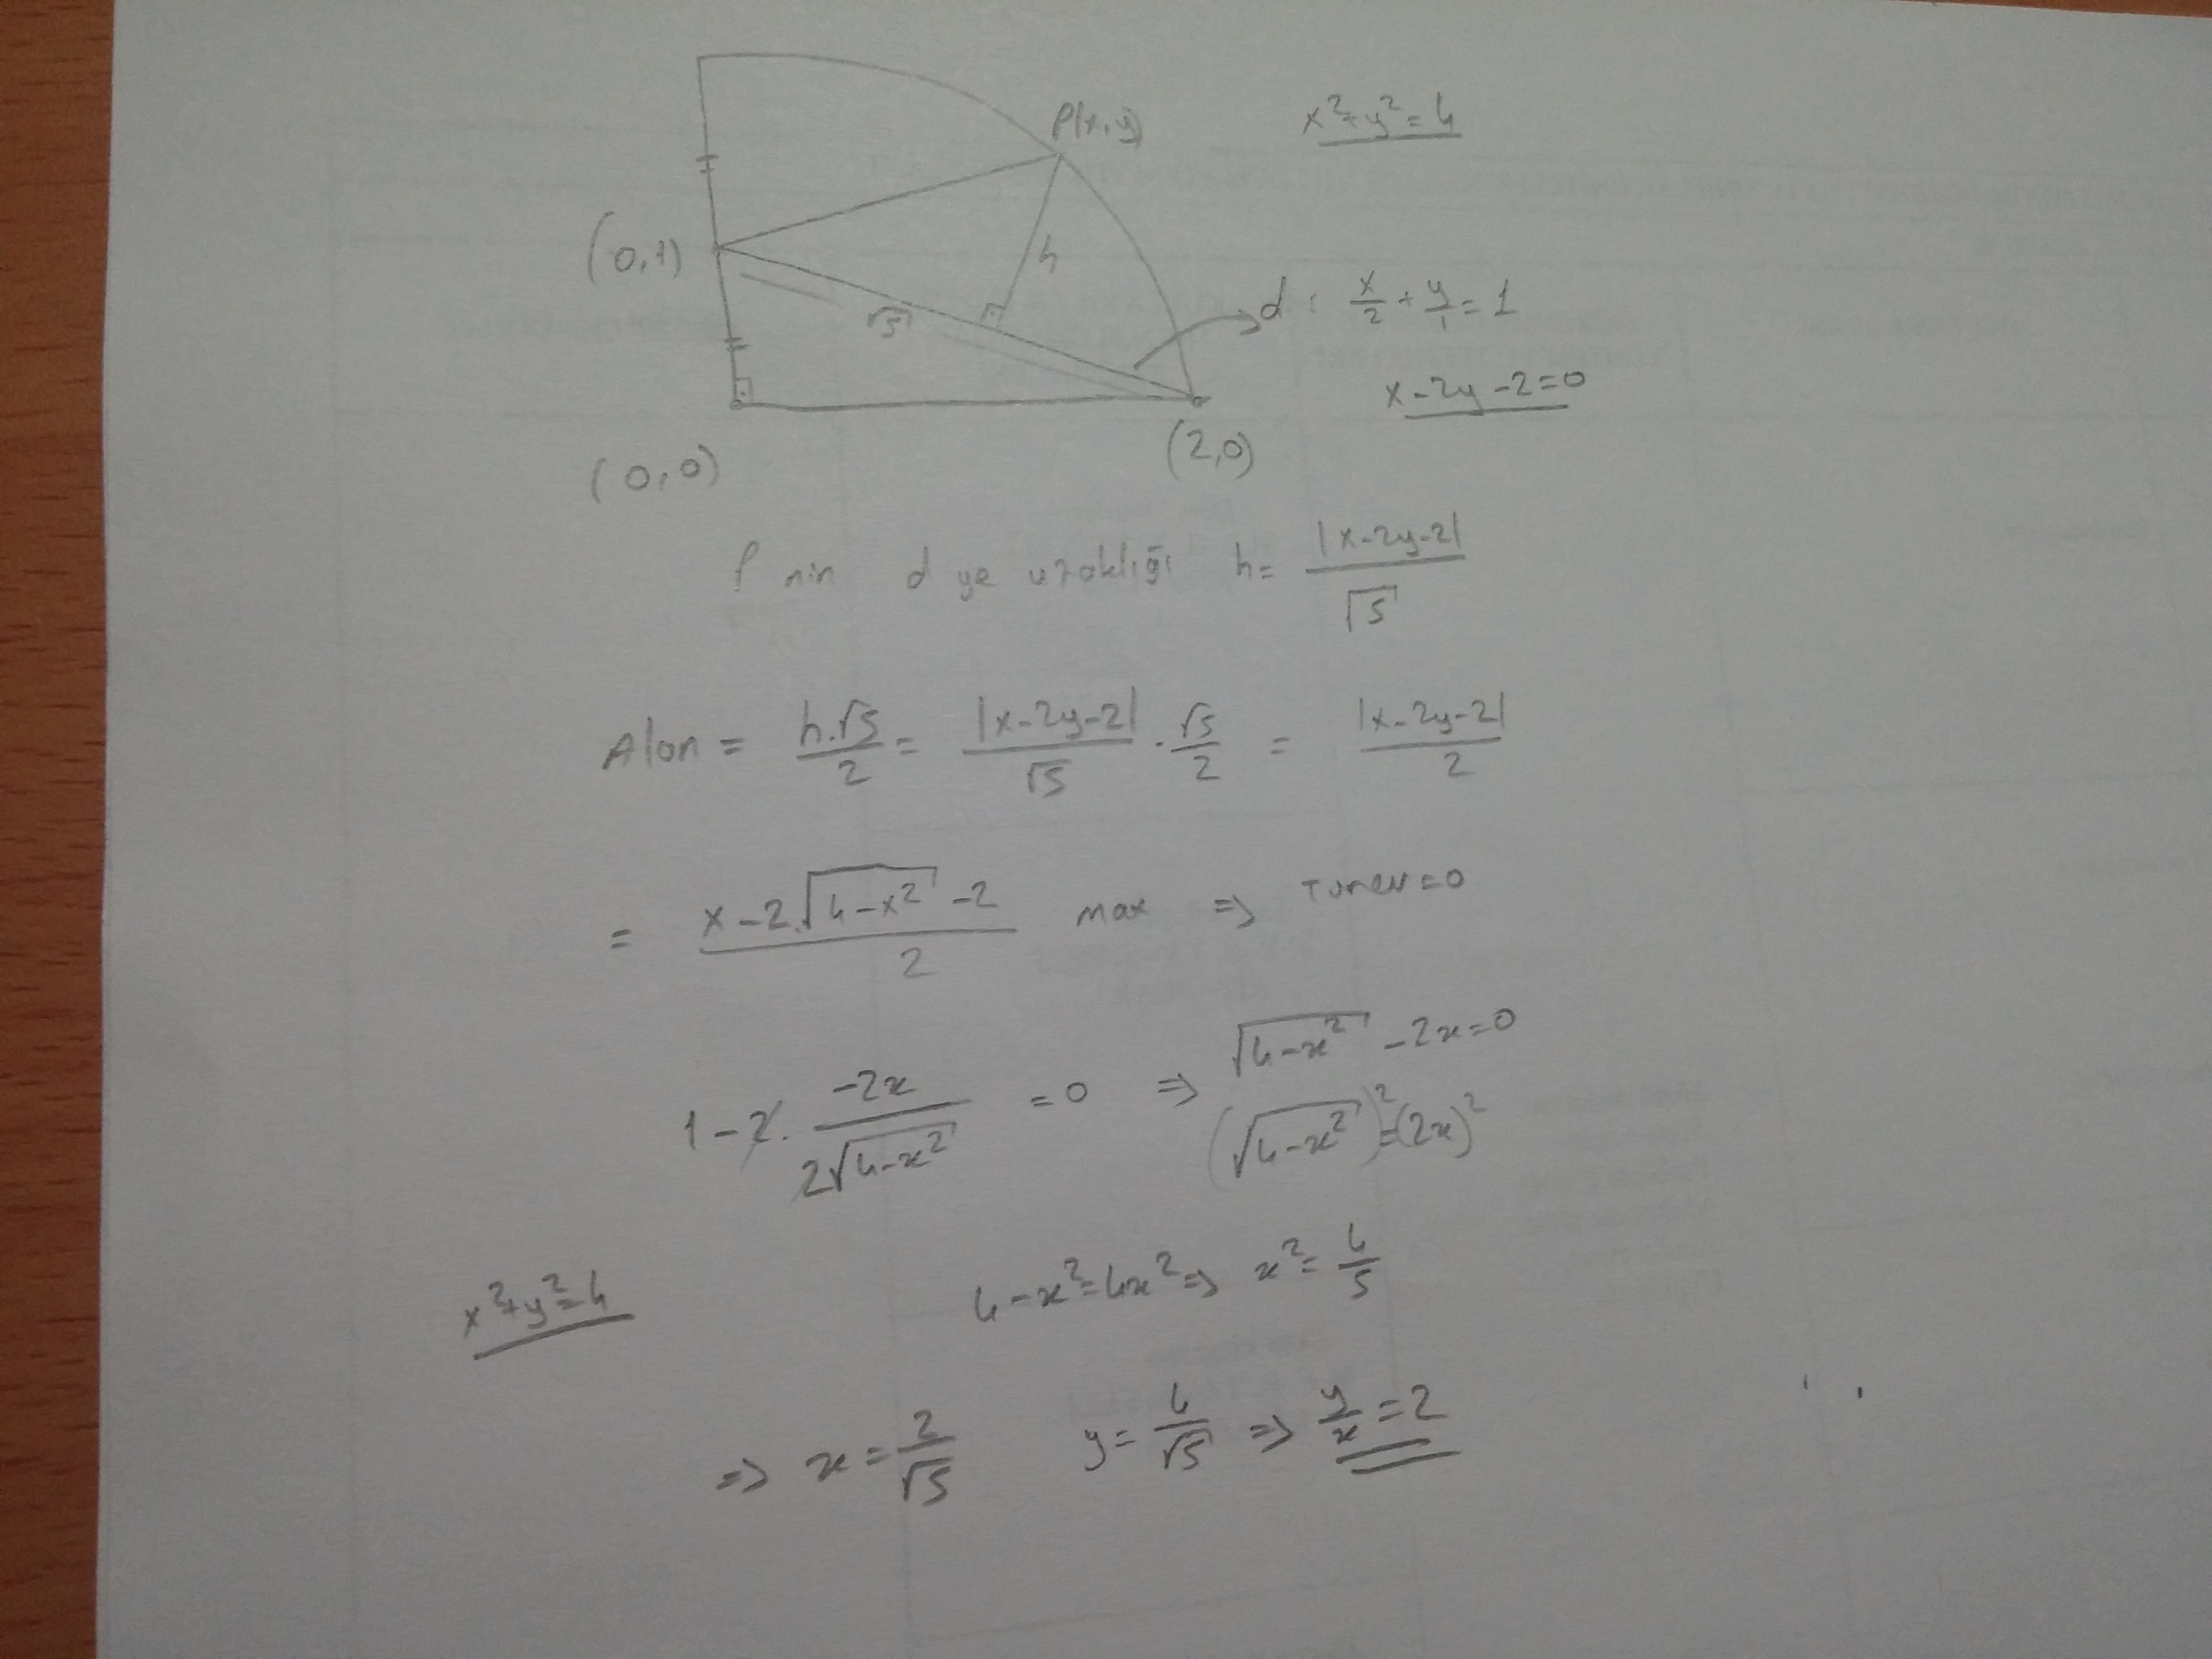 P(x,y)
x²+y²=4
(0,1)
h
√5
d: x/2 + y/1 = 1
x-2y-2=0
(0,0)
(2,0)
P nin d ye uzaklığı h= |x-2y-2|/√5
Alan = h.√5/2 = |x-2y-2|/√5 . √5/2 = |x-2y-2|/2
= (x-2.√(4-x²) -2)/2 max ⇒ Türev=0
1-2. -2x/(2√(4-x²)) =0 ⇒ √(4-x²) -2x=0
(√(4-x²))²=(2x)²
x²+y²=4
4-x²=4x² ⇒ x²=4/5
⇒ x=2/√5 y=4/√5 ⇒ y/x=2